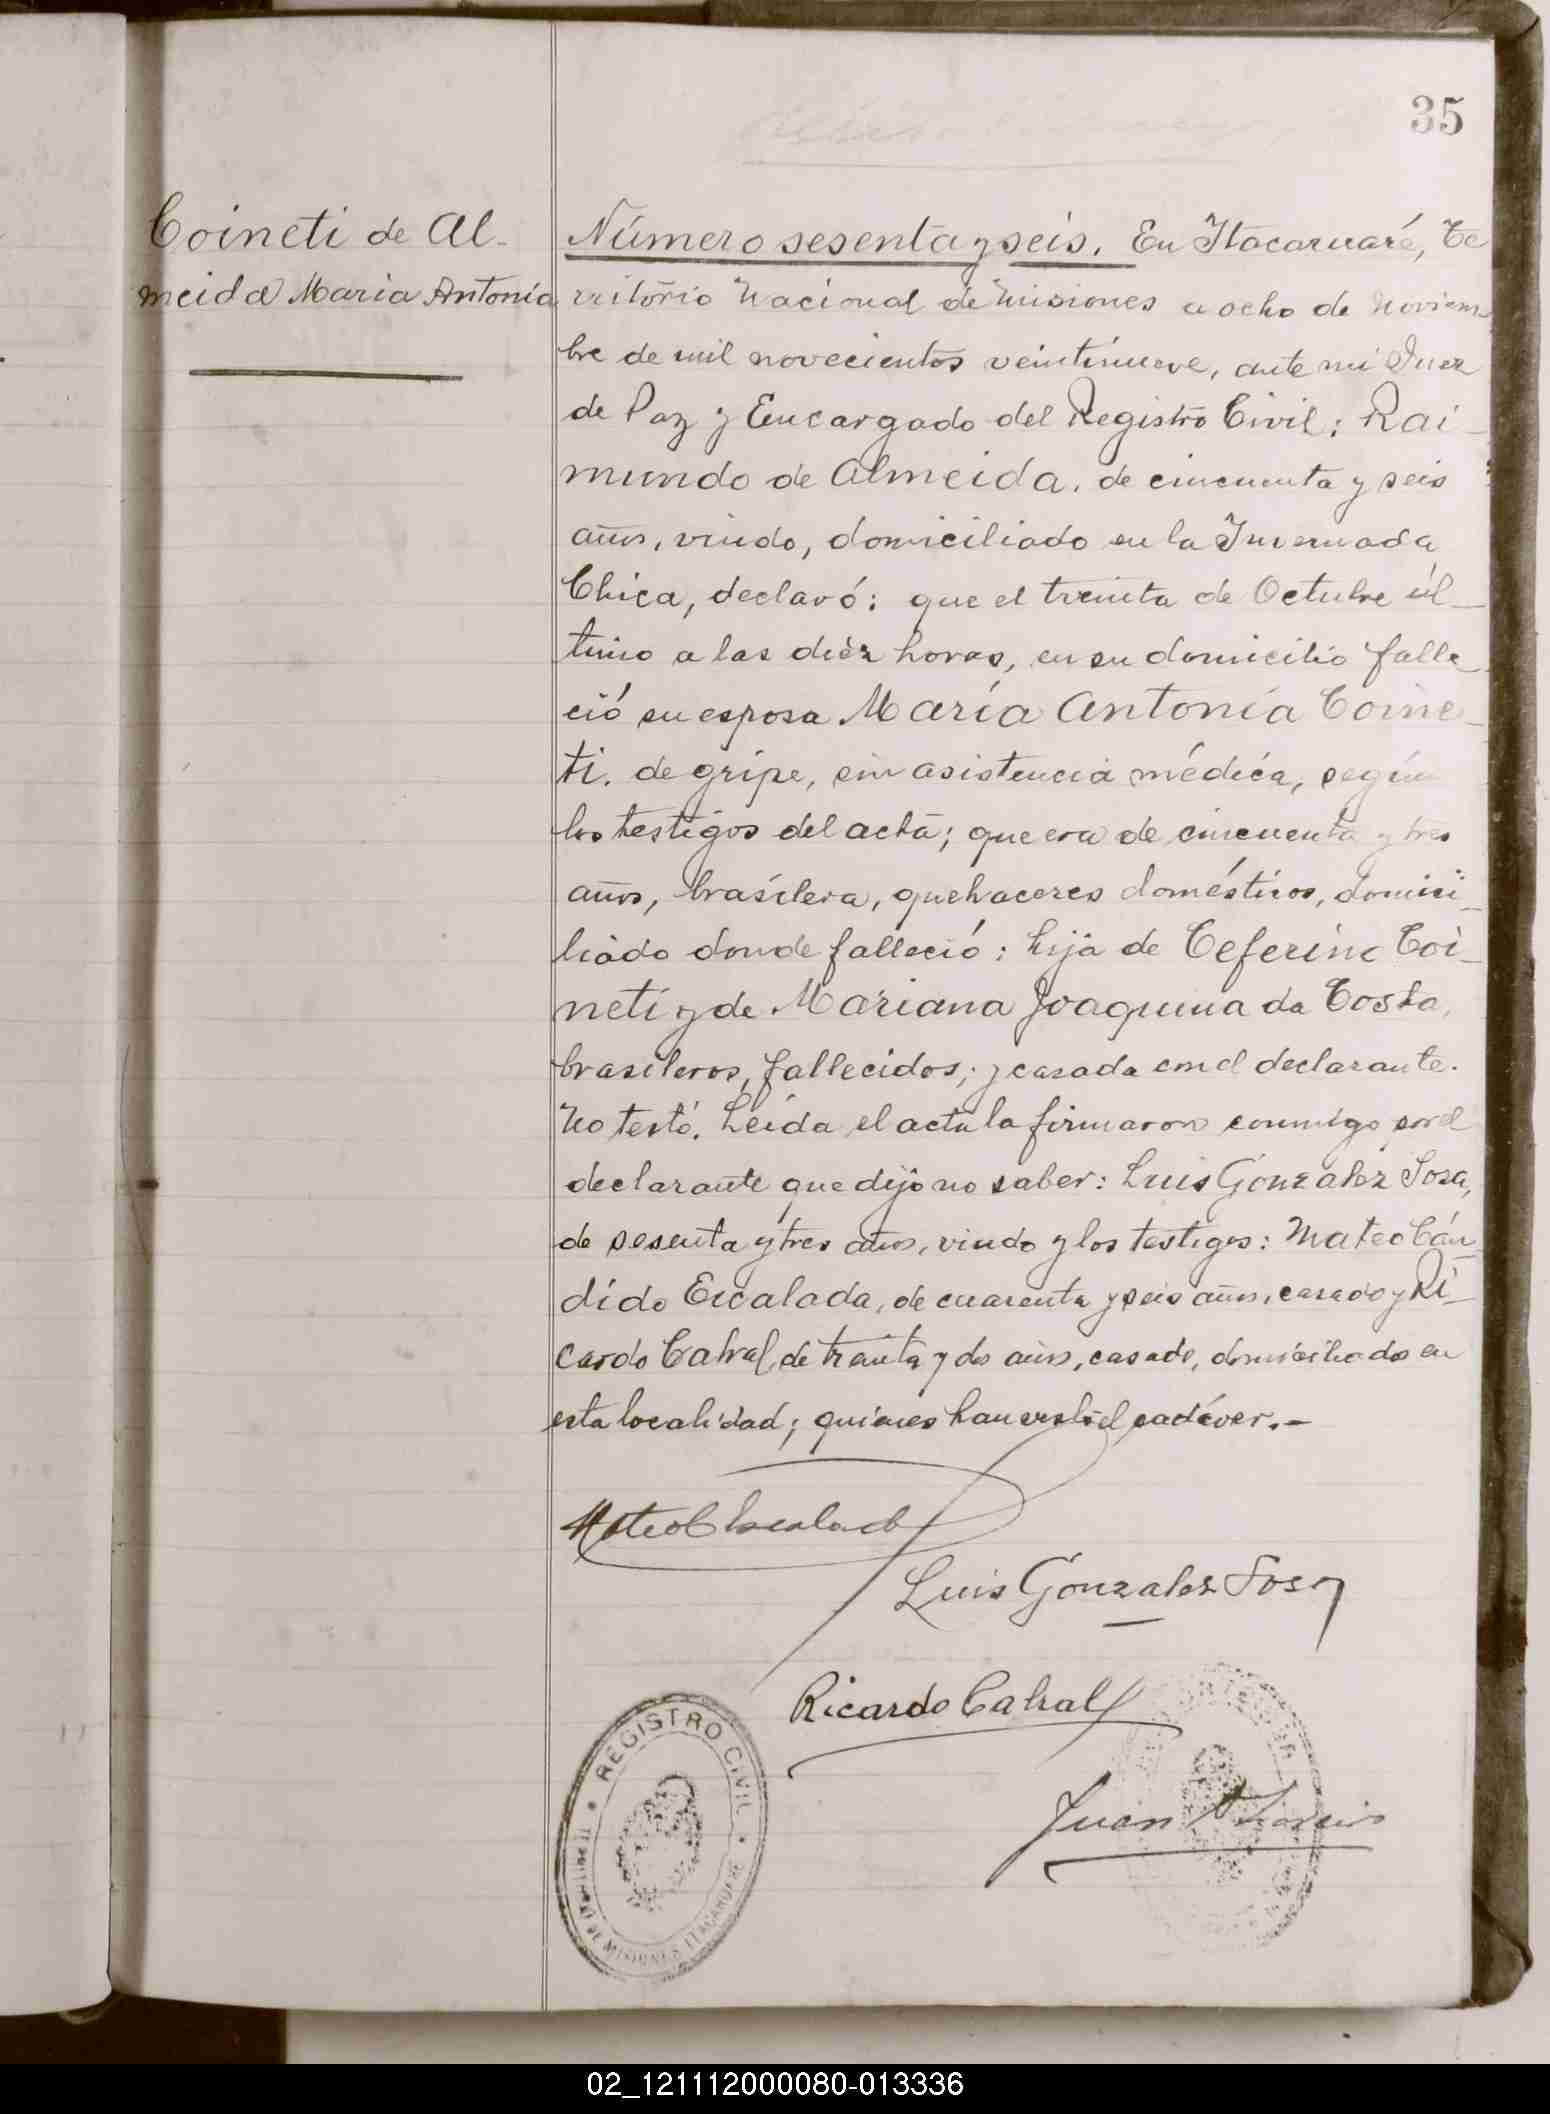 35
Coineti de Al-
meida Maria Antonia
Número sesenta y seis. En Itacaruaré, Te
rritorio Nacional de Misiones a ocho de Noviem-
bre de mil novecientos veintinueve, ante mi Juez
de Paz y Encargado del Registro Civil; Rai-
mundo de Almeida, de cincuenta y seis
años, viudo, domiciliado en la Invernada
Chica, declaró: que el treinta de Octubre úl-
timo a las diez horas, en su domicilio falle-
ció su esposa María Antonia Coine-
ti. de gripe, sin asistencia médica, según
los testigos del acta; que era de cincuenta y tres
años, brasilera, quehaceres domésticos, domici-
liado donde falleció; hija de Ceferino Coi-
neti y de Mariana Joaquina da Costa,
brasileros, fallecidos; y casada con el declarante.
No testó. Leída el acta la firmaron conmigo por el
declarante que dijo no saber: Luis González Sosa,
de sesenta y tres años, viudo y los testigos: Mateo Cán-
dido Escalada, de cuarenta y seis años, casado y Ri-
cardo Cabral, de treinta y dos años, casado, domiciliado en
esta localidad; quienes han visto el cadáver.-
Mateo C Escalada
Luis González Sosa
Ricardo Cabral
Juan
REGISTRO CIVIL
DE MISIONES ITACARUARE
02_121112000080-013336